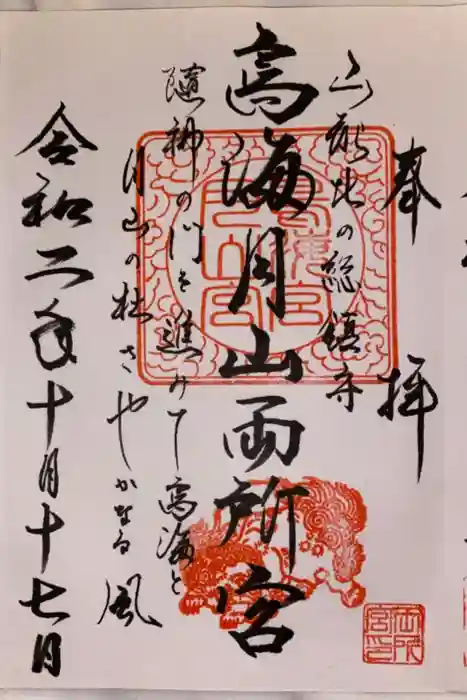 奉拝
山形北の総鎮守
鳥海月山両所宮
隨神の門を進みて鳥海と
月山の杜さやかなる風
令和二年十月十七日
鳥海宮
月山宮
両所
宮印